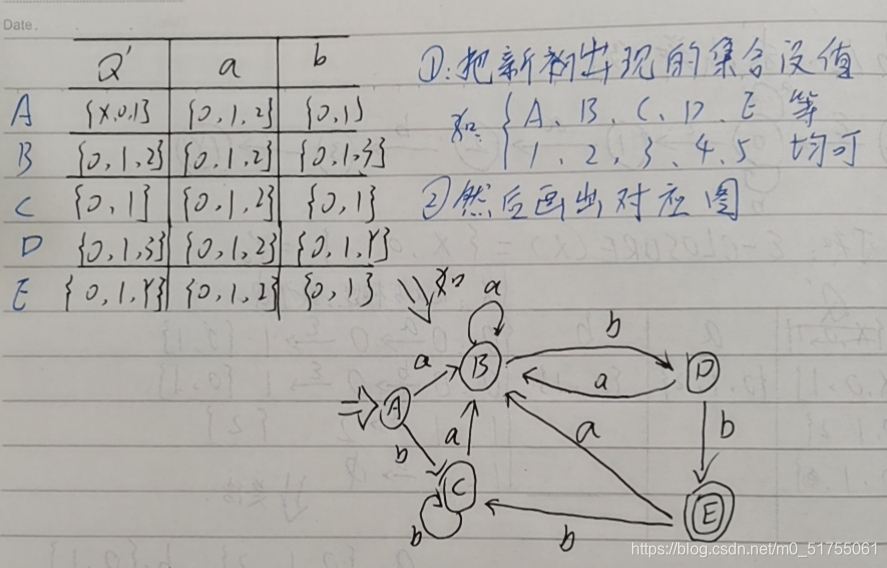 Date.
Q' a b
A {X,0,1} {0,1,2} {0,1}
B {0,1,2} {0,1,2} {0,1,3}
C {0,1} {0,1,2} {0,1}
D {0,1,3} {0,1,2} {0,1,Y}
E {0,1,Y} {0,1,2} {0,1}
①:把新初出现的集合设值
如: { A、B、C、D、E 等
1、2、3、4、5 均可
②然后画出对应图
如
a
b
a
B
a
D
A
b
a
a
b
C
b
b
E
https://blog.csdn.net/m0_51755061